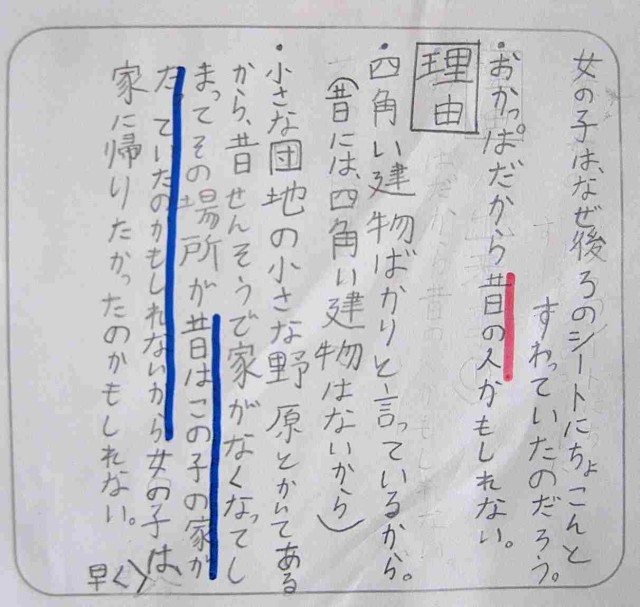 女の子は、なぜ後ろのシートにちょこんと
すわっていたのだろう。
・おかっぱだから昔の人かもしれない。
理由
・四角い建物ばかりと言っているから。
(昔には、四角い建物はないから)
・小さな団地の小さな野原とかいてある
から、昔せんそうで家がなくなってし
まってその場所が昔はこの子の家が
たっていたのかもしれないから女の子は、
早く
家に帰りたかったのかもしれない。